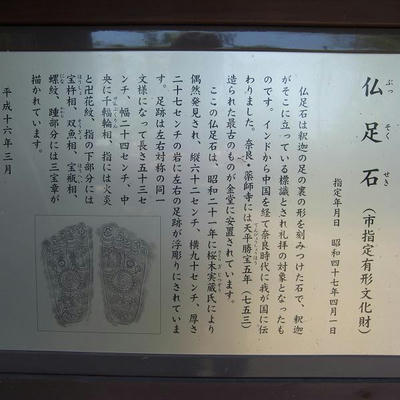 仏足石(市指定有形文化財)
ぶっ そく せき
指定年月日 昭和四十七年四月一日
仏足石は釈迦の足の裏の形を刻みつけた石で、釈迦
がそこに立っている標識とされ礼拝の対象となったも
のです。インドから中国を経て奈良時代に我が国に伝
わりました。奈良・薬師寺には天平勝宝五年(七五三)
造られた最古のものが金堂に安置されています。
ここの仏足石は、昭和二十一年に桜木実蔵氏により
偶然発見され、縦六十二センチ、横九十七センチ、厚さ
二十七センチの岩に左右の足跡が浮彫りにされていま
す。足跡は左右対称の同一
文様になって長さ五十三セ
ンチ、幅二十四センチ、中
央に千輻輪相、指には火炎
と卍花紋、指の下部分には
宝杵相、双魚相、宝瓶相、
螺紋、踵部分には三宝章が
描かれています。
平成十六年三月